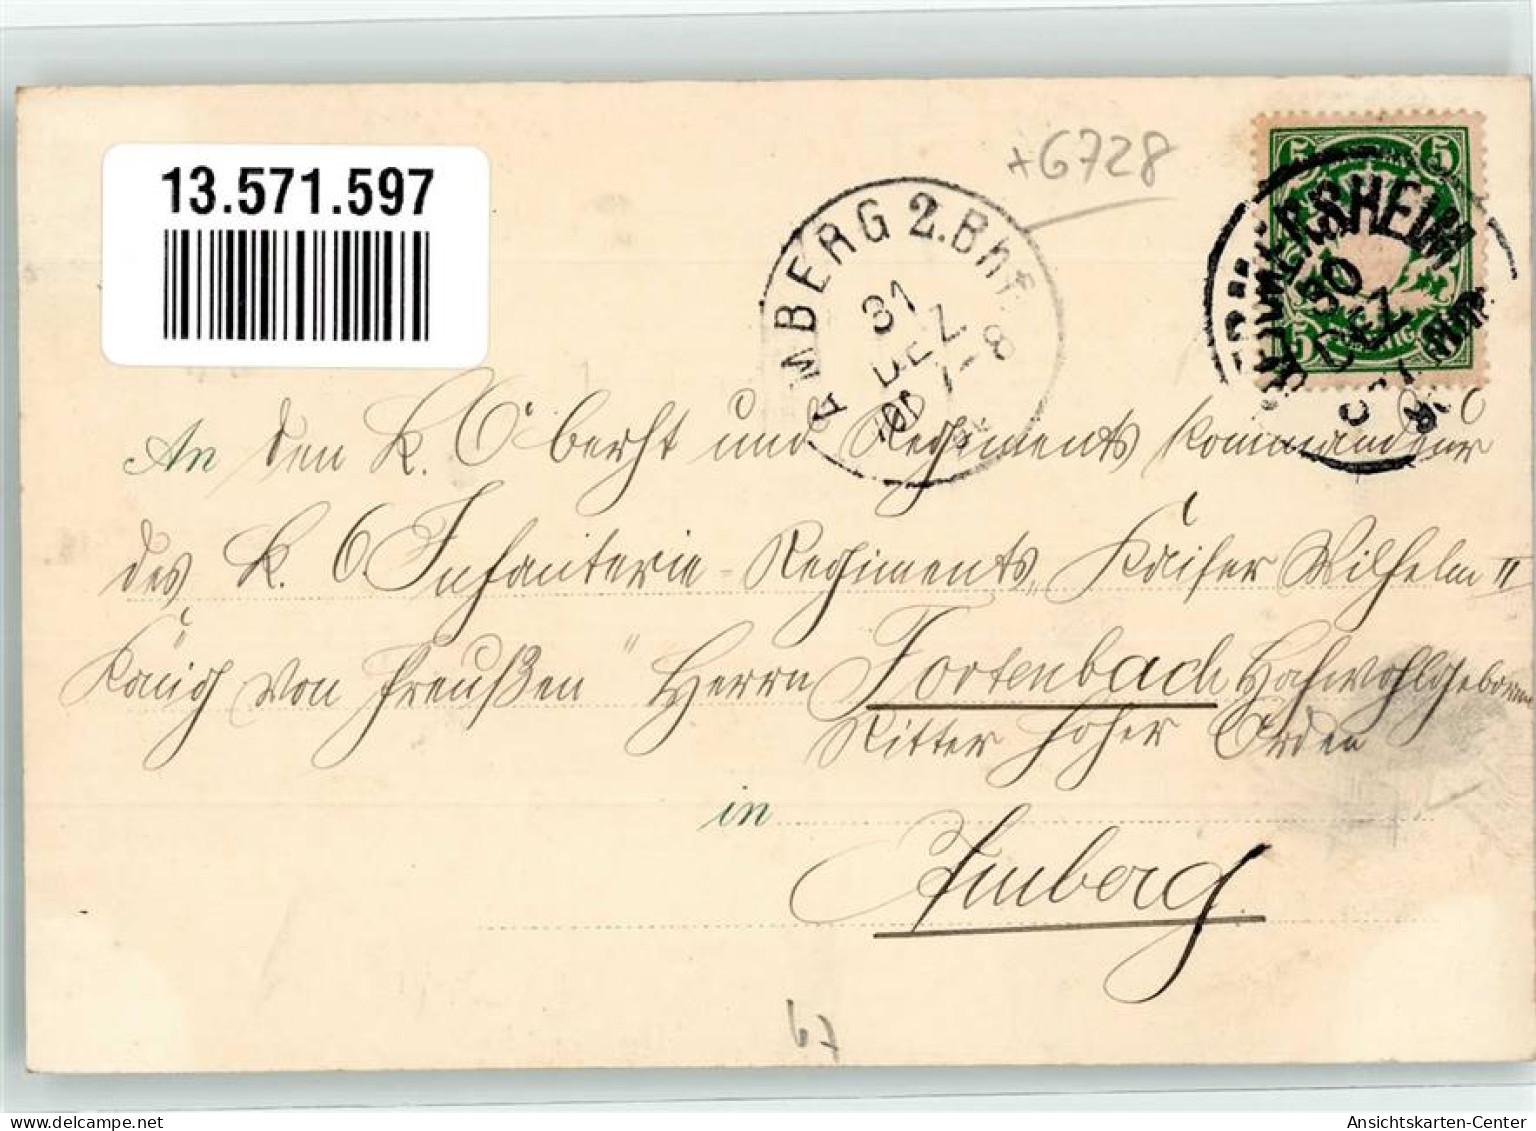 13.571.597
+6728
AMBERG 2.Bhf.
31
DEZ
7-8
00
GERMERSHEIM
30
DEZ
5 5
5
An den K. Oberst und Regiments Kommandeur
des K. 6. Infanterie-Regiments „Kaiser Wilhelm II
König von Preußen" Herrn Fortenbach Hochwohlgeboren
Ritter hoher Orden
in
Amberg
67
Ansichtskarten-Center